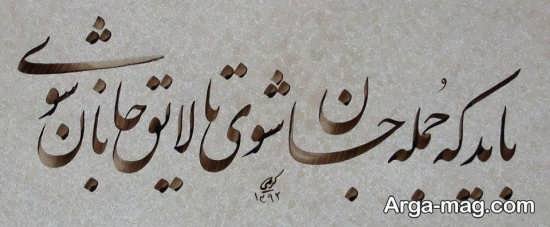 باید که جمله جان شوی تا لایق جانان شوی
کرمی
۱۳۹۲
Arga-mag.com